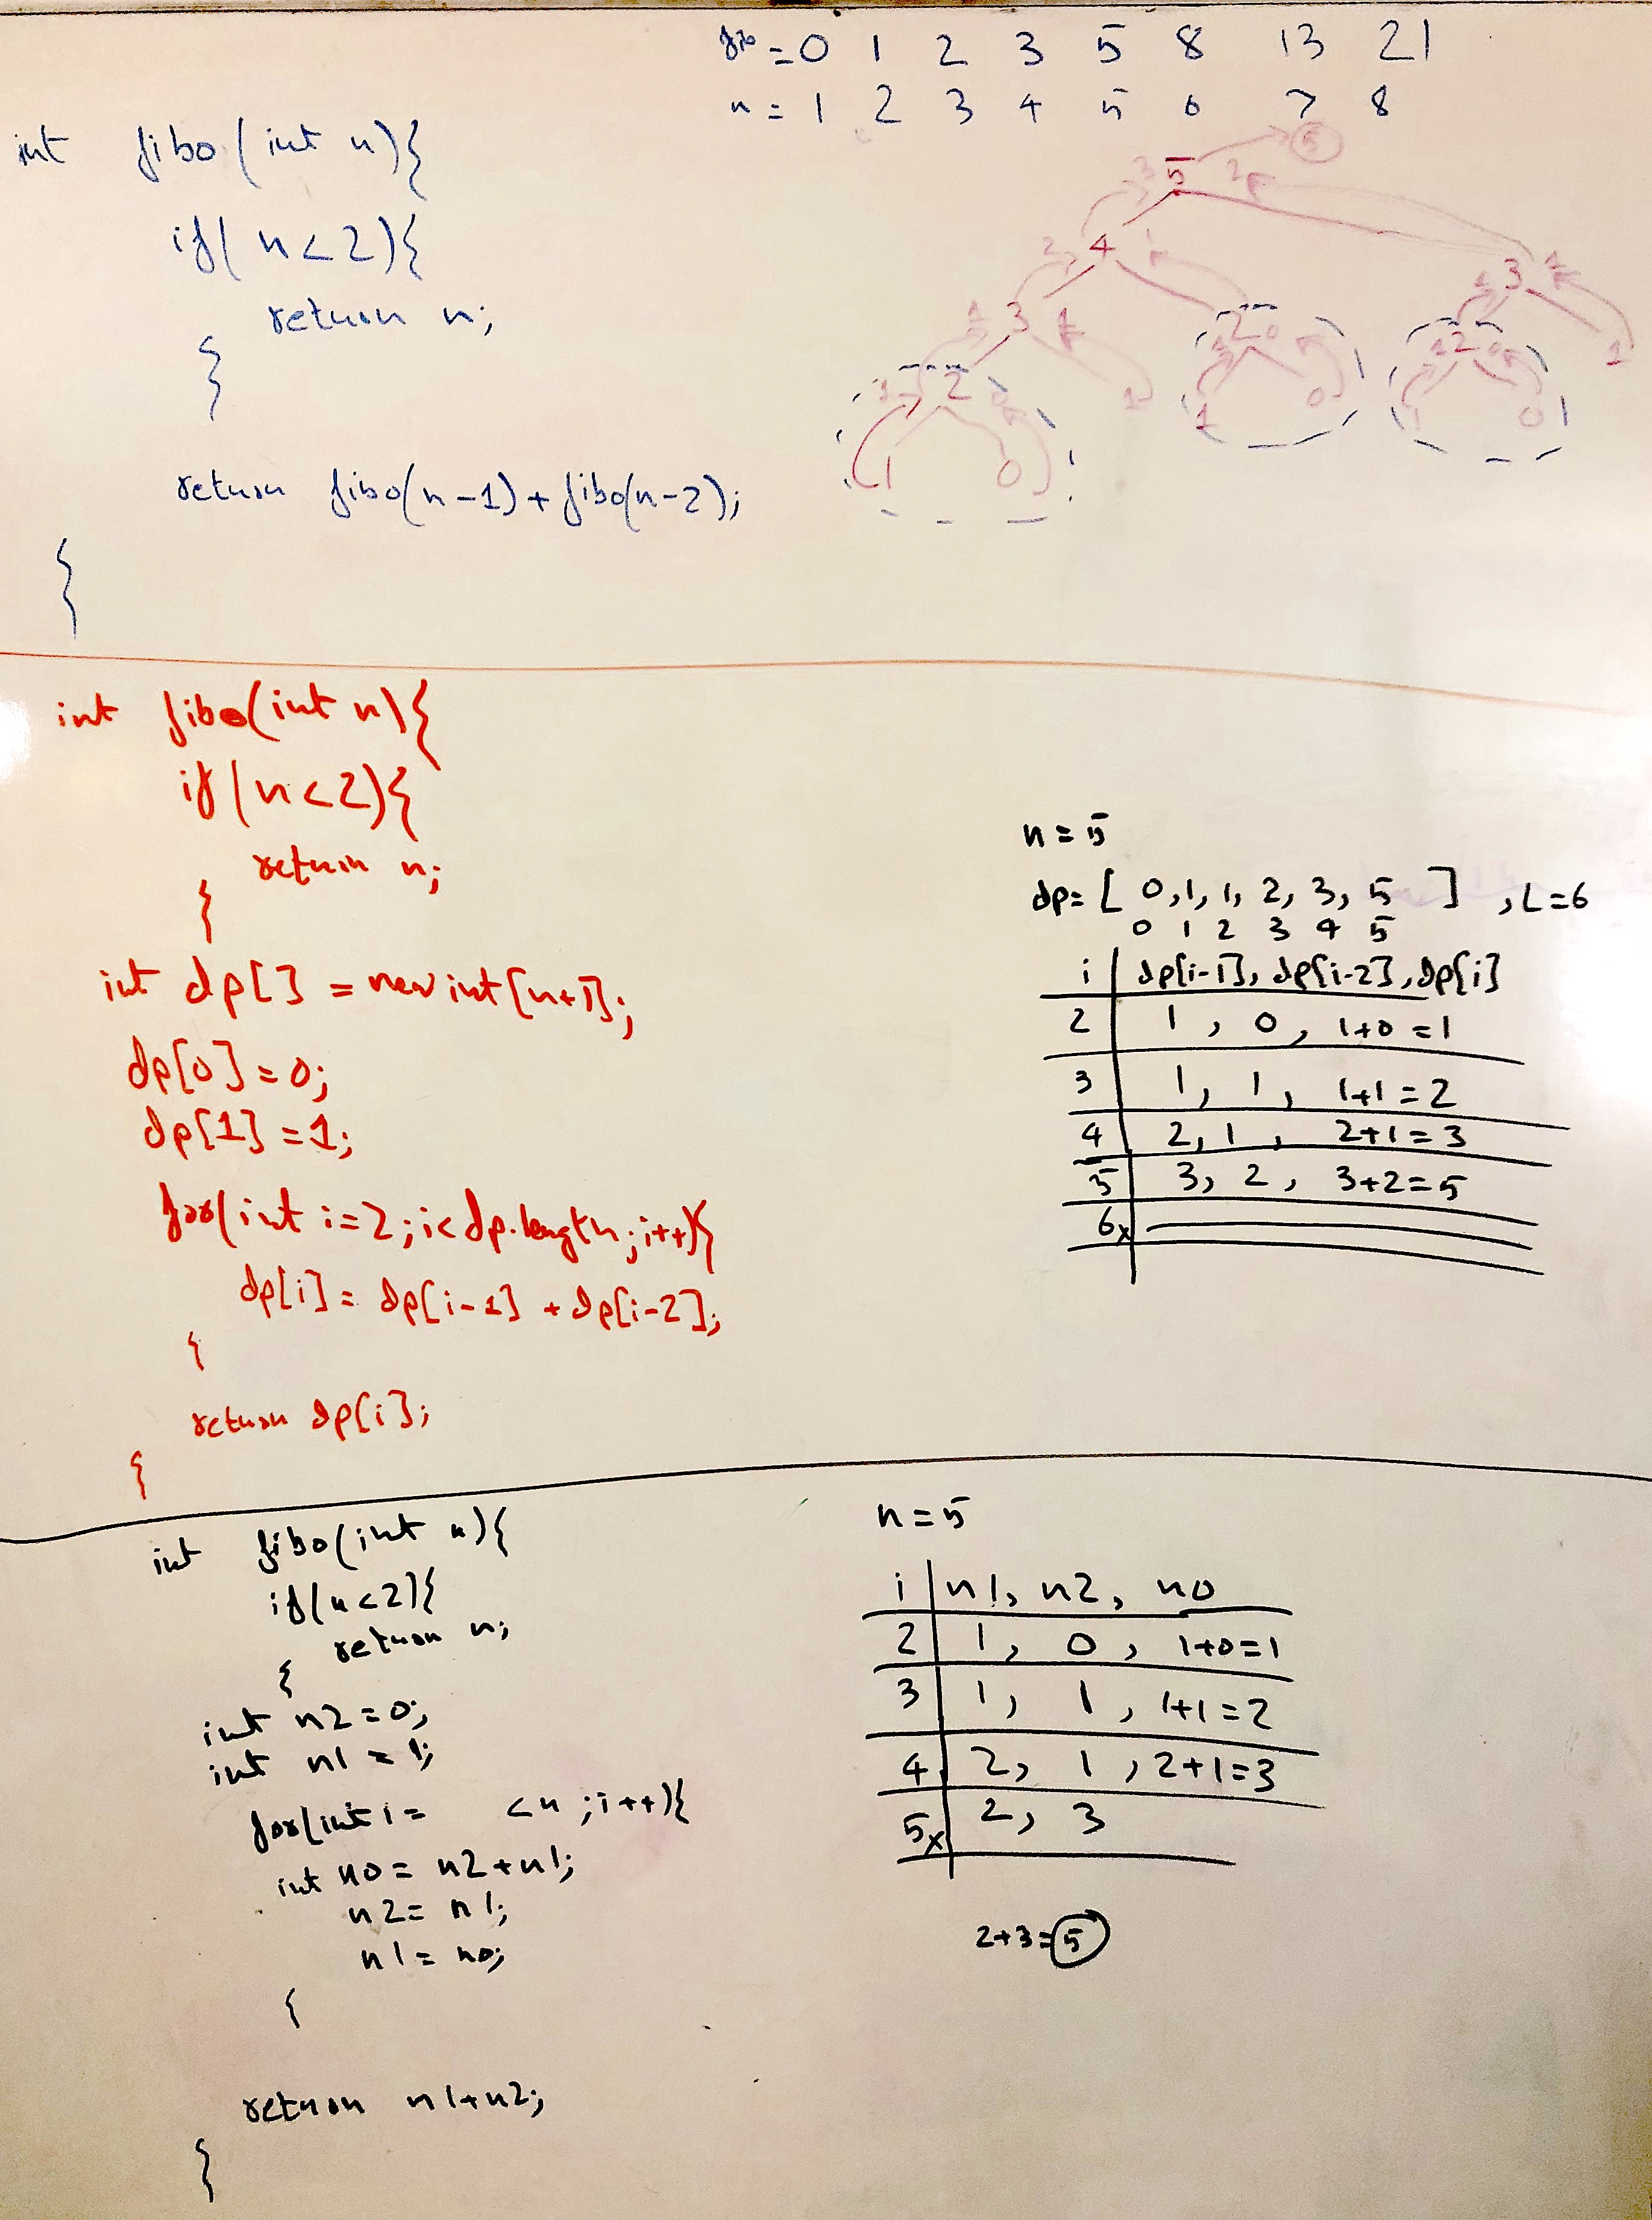 fibo = 0 1 2 3 5 8 13 21
n = 1 2 3 4 5 6 7 8
int fibo(int n){
if(n<2){
return n;
}
return fibo(n-1)+fibo(n-2);
}
5
3 5 2
2 4 1
1 3 1
1 3 1
1 2 0
1 2 0
1 2 0
1
1
1 0
1 0
1 0
int fibo(int n){
if(n<2){
return n;
}
int dp[] = new int[n+1];
dp[0] = 0;
dp[1] = 1;
for(int i=2;i<dp.length;i++){
dp[i] = dp[i-1] + dp[i-2];
}
return dp[i];
}
n = 5
dp= [ 0,1,1,2,3,5 ] ,L=6
0 1 2 3 4 5
i dp[i-1], dp[i-2], dp[i]
2 1 , 0 , 1+0 = 1
3 1, 1, 1+1 = 2
4 2, 1 , 2+1 = 3
5 3, 2, 3+2=5
6x
int fibo(int n){
if(n<2){
return n;
}
int n2 = 0;
int n1 = 1;
for(int i = <n ;i++){
int n0 = n2+n1;
n2 = n1;
n1 = n0;
}
return n1+n2;
}
n = 5
i n1, n2, n0
2 1, 0 , 1+0=1
3 1, 1 , 1+1 = 2
4 2, 1 , 2+1=3
5x 2, 3
2+3=5